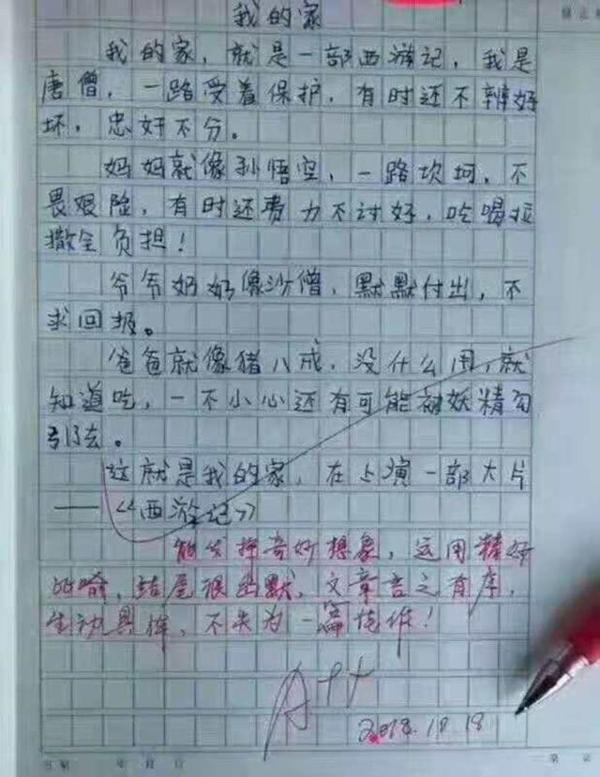 我的家
我的家，就是一部西游记，我是
唐僧，一路受着保护，有时还不辨好
坏，忠奸不分。
妈妈就像孙悟空，一路坎坷，不
畏艰险，有时还费力不讨好，吃喝拉
撒全负担！
爷爷奶奶像沙僧，默默付出，不
求回报。
爸爸就像猪八戒，没什么用，就
知道吃，一不小心还有可能被妖精勾
引去。
这就是我的家，在上演一部大片
——《西游记》
能发挥奇妙想象，运用精妙
的喻，结尾很幽默，文章言之有序，
生动具体，不失为一篇佳作！
A++
2018.10.18